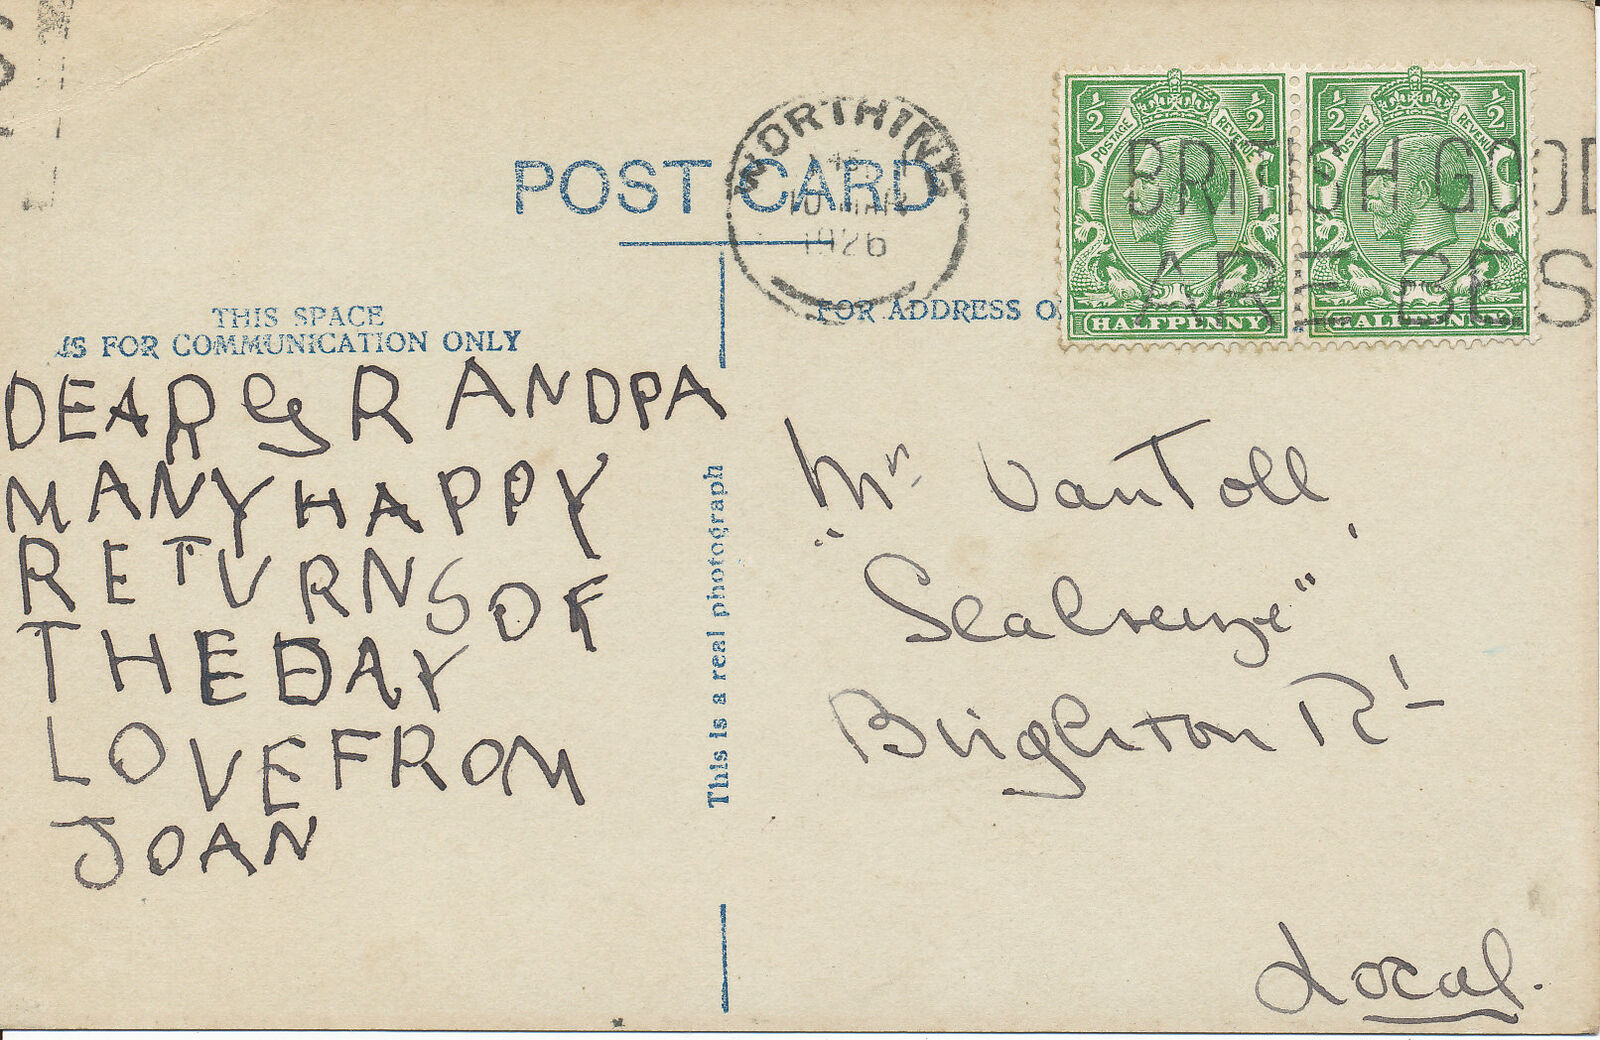 POST CARD
WORTHING
1926
BRITISH GOOD
ARE BES
½ POSTAGE REVENUE ½
HALFPENNY
½ POSTAGE REVENUE ½
HALFPENNY
THIS SPACE
IS FOR COMMUNICATION ONLY
FOR ADDRESS O
DEAR GRANDPA
MANY HAPPY
RETURNS OF
THE DAY
LOVE FROM
JOAN
This is a real photograph
Mr Van Toll,
"Seabreeze"
Brighton Rd
Local.